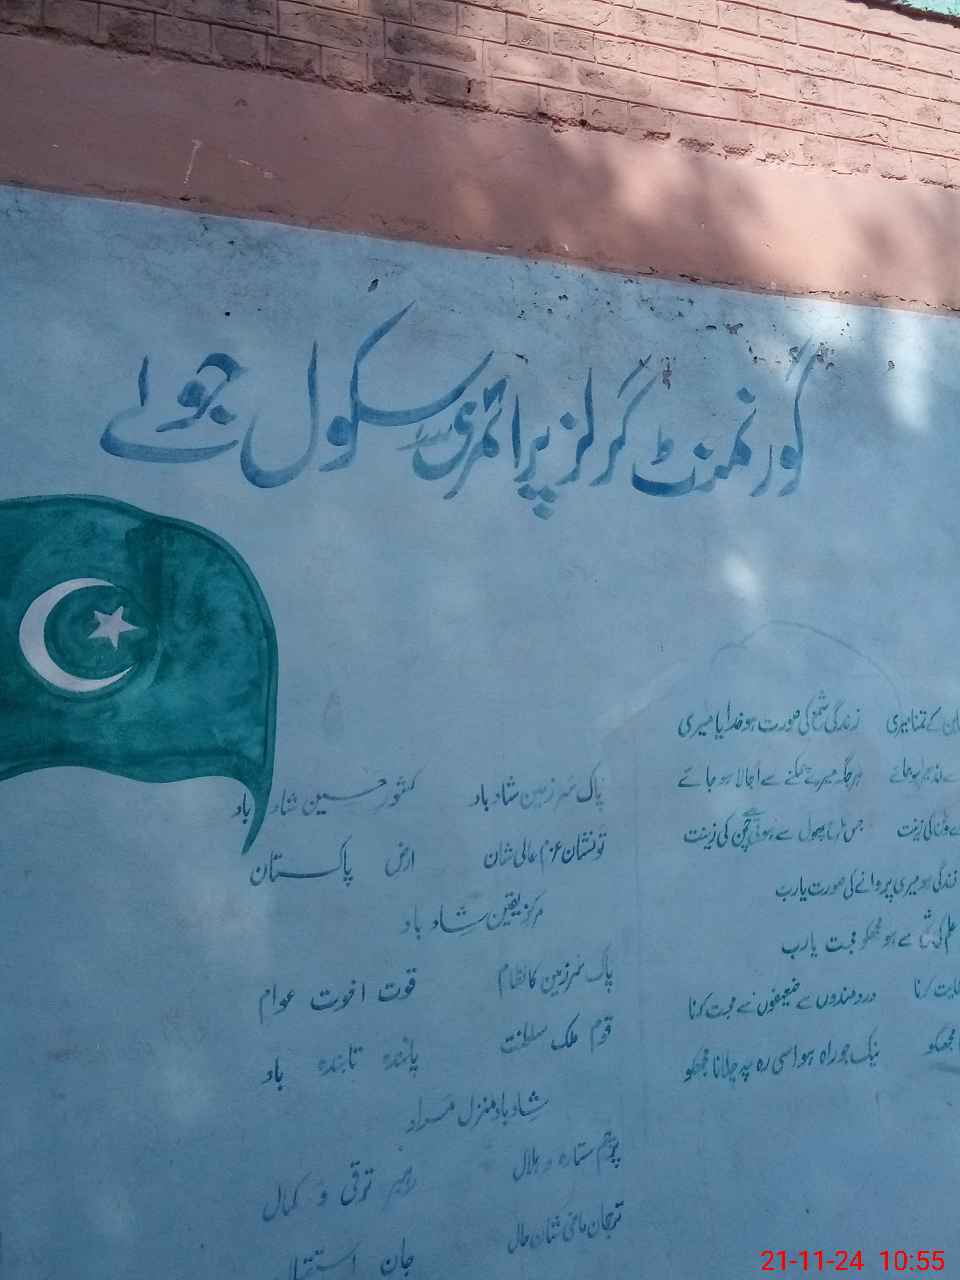 گورنمنٹ گرلز پرائمری سکول جوالے
کے تمنا میری زندگی شمع کی صورت ہو خدایا میری
ہر جگہ میرے چمکنے سے اجالا ہو جائے
کی زینت جس طرح پھول سے ہوتی ہے چمن کی زینت
زندگی ہو میری پروانے کی صورت یارب
علم کی شمع سے ہو مجھکو محبت یارب
کرنا دردمندوں سے ضعیفوں سے محبت کرنا
مجھکو نیک جو راہ ہو اسی رہ پہ چلانا مجھکو
پاک سرزمین شاد باد کشور حسین شاد باد
تو نشان عزم عالی شان ارض پاکستان
مرکز یقین شاد باد
پاک سرزمین کا نظام قوت اخوت عوام
قوم ملک سلطنت پائندہ تابندہ باد
شاد باد منزل مراد
پرچم ستارہ و ہلال رہبر ترقی و کمال
ترجمان ماضی شان حال جان استقبال
21-11-24 10:55